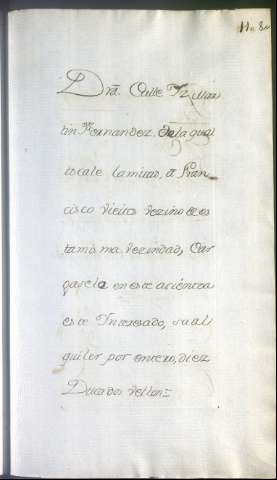 11. 8.
Dra. Calle Dr. Mar
tin Fernandez. De la qual
tocale lamitad, a Fran=
cisco Vieites vezino de es
tamisma vezindad, Car
gasele en este aciento a
este Interesado, su al
quiler por entero, diez
Ducados Vellon=